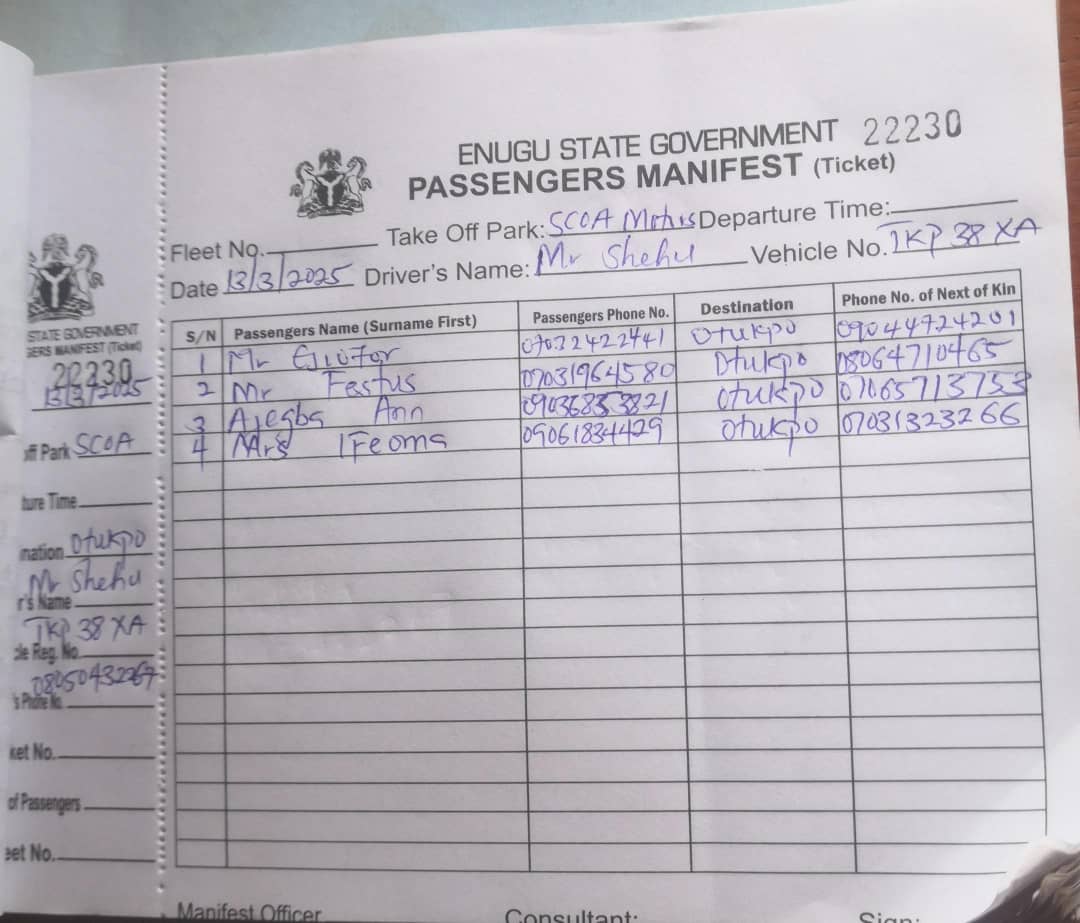 ENUGU STATE GOVERNMENT 22230
PASSENGERS MANIFEST (Ticket)
Fleet No. Take Off Park: SCOA Motors Departure Time:
Date 13/3/2025 Driver's Name: Mr Shehu Vehicle No. TKP 38 XA
S/N Passengers Name (Surname First) Passengers Phone No. Destination Phone No. of Next of Kin
1 Mr Otukpo 09044724201
2 Mr Festus 07031964580 Otukpo 08064710465
3 Ajegba Ann 09036853821 Otukpo 07065713753
4 Mrs IFeoma 09061834429 Otukpo 07031323266
Manifest Officer Consultant: Sign:
STATE GOVERNMENT
GERS MANIFEST (Ticket)
22230
13/3/2025
off Park SCOA
ture Time
nation Otukpo
Mr Shehu
r's Name
TKP 38 XA
cle Reg. No
's Phone No
ket No.
of Passengers
eet No.